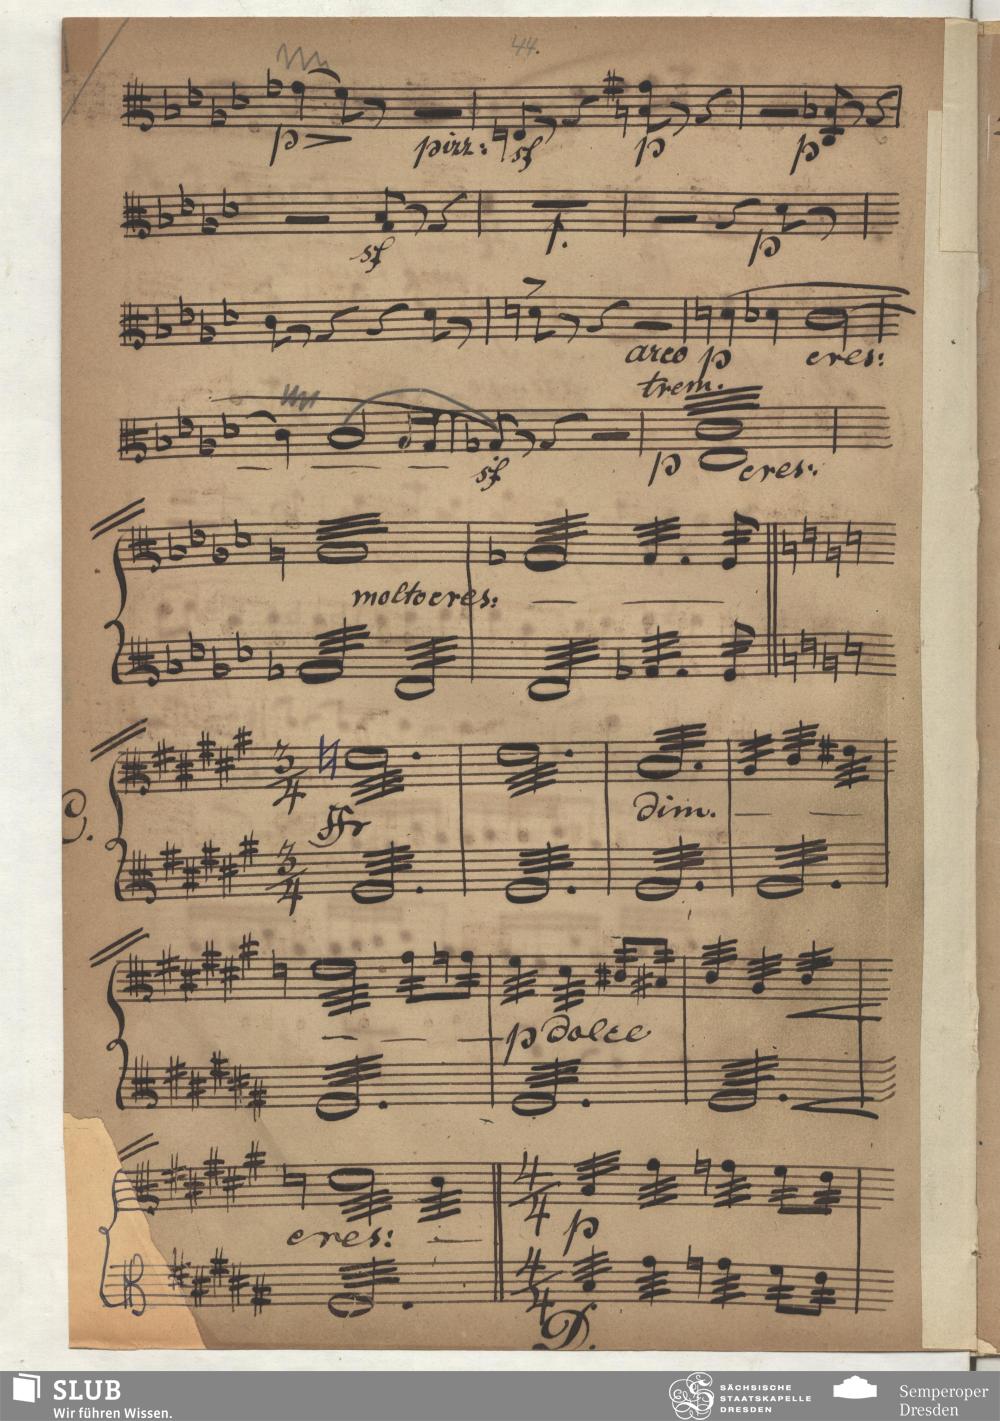 44.
p pizz: sf p p
sf 1. p
arco p cres:
trem:
sf p cres:
molto cres:
3/4 3/4
C.
ffr dim.
p dolce
cres: 4/4 p 4/4
D.
SLUB
Wir führen Wissen.
SÄCHSISCHE
STAATSKAPELLE
DRESDEN
Semperoper
Dresden